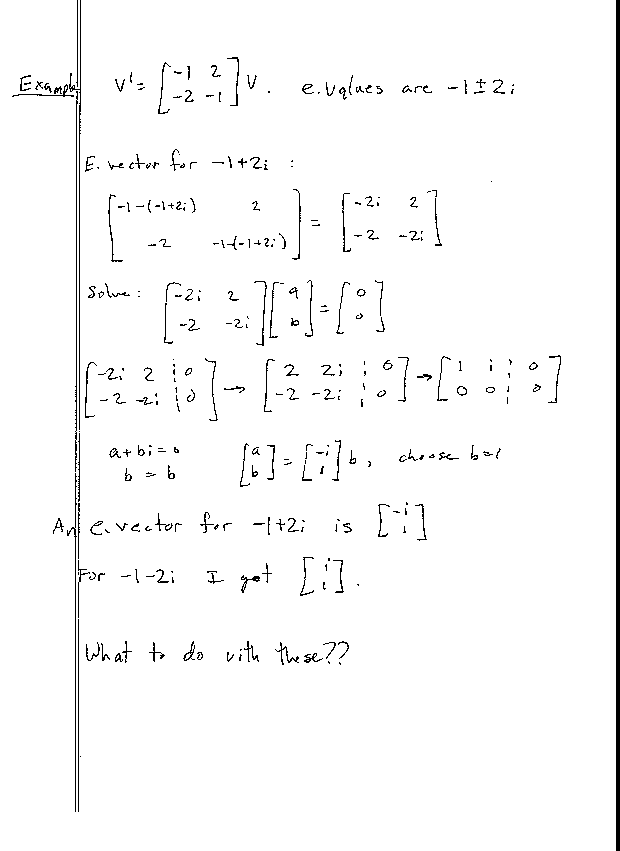 Example V' = [-1 2; -2 -1] V. e.values are -1 ± 2i
E. vector for -1+2i :
[-1-(-1+2i) 2; -2 -1-(-1+2i)] = [-2i 2; -2 -2i]
Solve: [-2i 2; -2 -2i] [a; b] = [0; 0]
[-2i 2 | 0; -2 -2i | 0] → [2 2i | 0; -2 -2i | 0] → [1 i | 0; 0 0 | 0]
a + bi = 0
b = b
[a; b] = [-i; 1] b, choose b=1
An e.vector for -1+2i is [-i; 1]
For -1-2i I get [i; 1].
What to do with these??